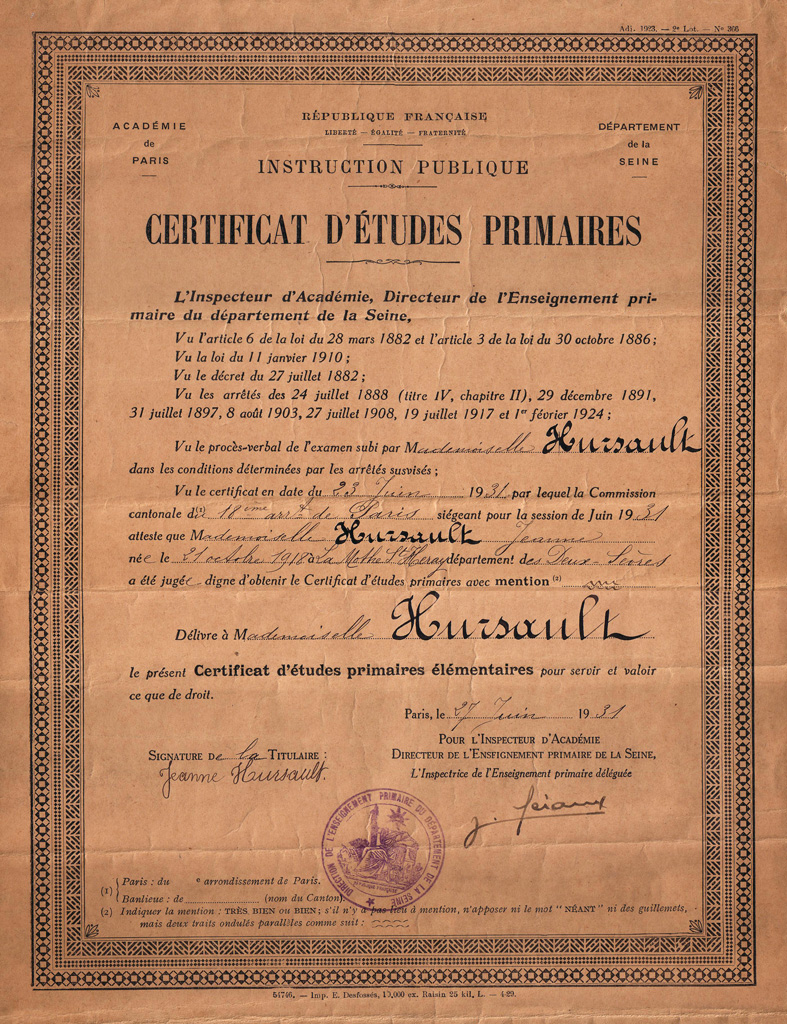 Adj. 1923. — 2e Lot. — No 366
RÉPUBLIQUE FRANÇAISE
LIBERTÉ — ÉGALITÉ — FRATERNITÉ
ACADÉMIE
de
PARIS
DÉPARTEMENT
de la
SEINE
INSTRUCTION PUBLIQUE
CERTIFICAT D'ÉTUDES PRIMAIRES
L'Inspecteur d'Académie, Directeur de l'Enseignement pri-
maire du département de la Seine,
Vu l'article 6 de la loi du 28 mars 1882 et l'article 3 de la loi du 30 octobre 1886;
Vu la loi du 11 janvier 1910;
Vu le décret du 27 juillet 1882;
Vu les arrêtés des 24 juillet 1888 (titre IV, chapitre II), 29 décembre 1891,
31 juillet 1897, 8 août 1903, 27 juillet 1908, 19 juillet 1917 et 1er février 1924;
Vu le procès-verbal de l'examen subi par Mademoiselle Hursault
dans les conditions déterminées par les arrêtés susvisés;
Vu le certificat en date du 23 Juin 1931 par lequel la Commission
cantonale du (1) 18ème arrt de Paris siégeant pour la session de Juin 1931
atteste que Mademoiselle Hursault Jeanne
née le 21 octobre 1918 à La Mothe St Heray département des Deux-Sèvres
a été jugée digne d'obtenir le Certificat d'études primaires avec mention (2)
Délivré à Mademoiselle Hursault
le présent Certificat d'études primaires élémentaires pour servir et valoir
ce que de droit.
Paris, le 27 Juin 1931
POUR L'INSPECTEUR D'ACADÉMIE
DIRECTEUR DE L'ENSEIGNEMENT PRIMAIRE DE LA SEINE,
L'Inspectrice de l'Enseignement primaire déléguée
SIGNATURE DE la TITULAIRE :
Jeanne Hursault.
DIRECTION DE L'ENSEIGNEMENT PRIMAIRE DU DÉPARTEMENT DE LA SEINE
(1) Paris : du e arrondissement de Paris.
Banlieue : de (nom du Canton)
(2) Indiquer la mention : TRÈS BIEN ou BIEN; s'il n'y a pas lieu à mention, n'apposer ni le mot "NÉANT" ni des guillemets,
mais deux traits ondulés parallèles comme suit :
54746. — Imp. E. Desfossés, 10,000 ex. Raisin 25 kil. L. — 4-29.